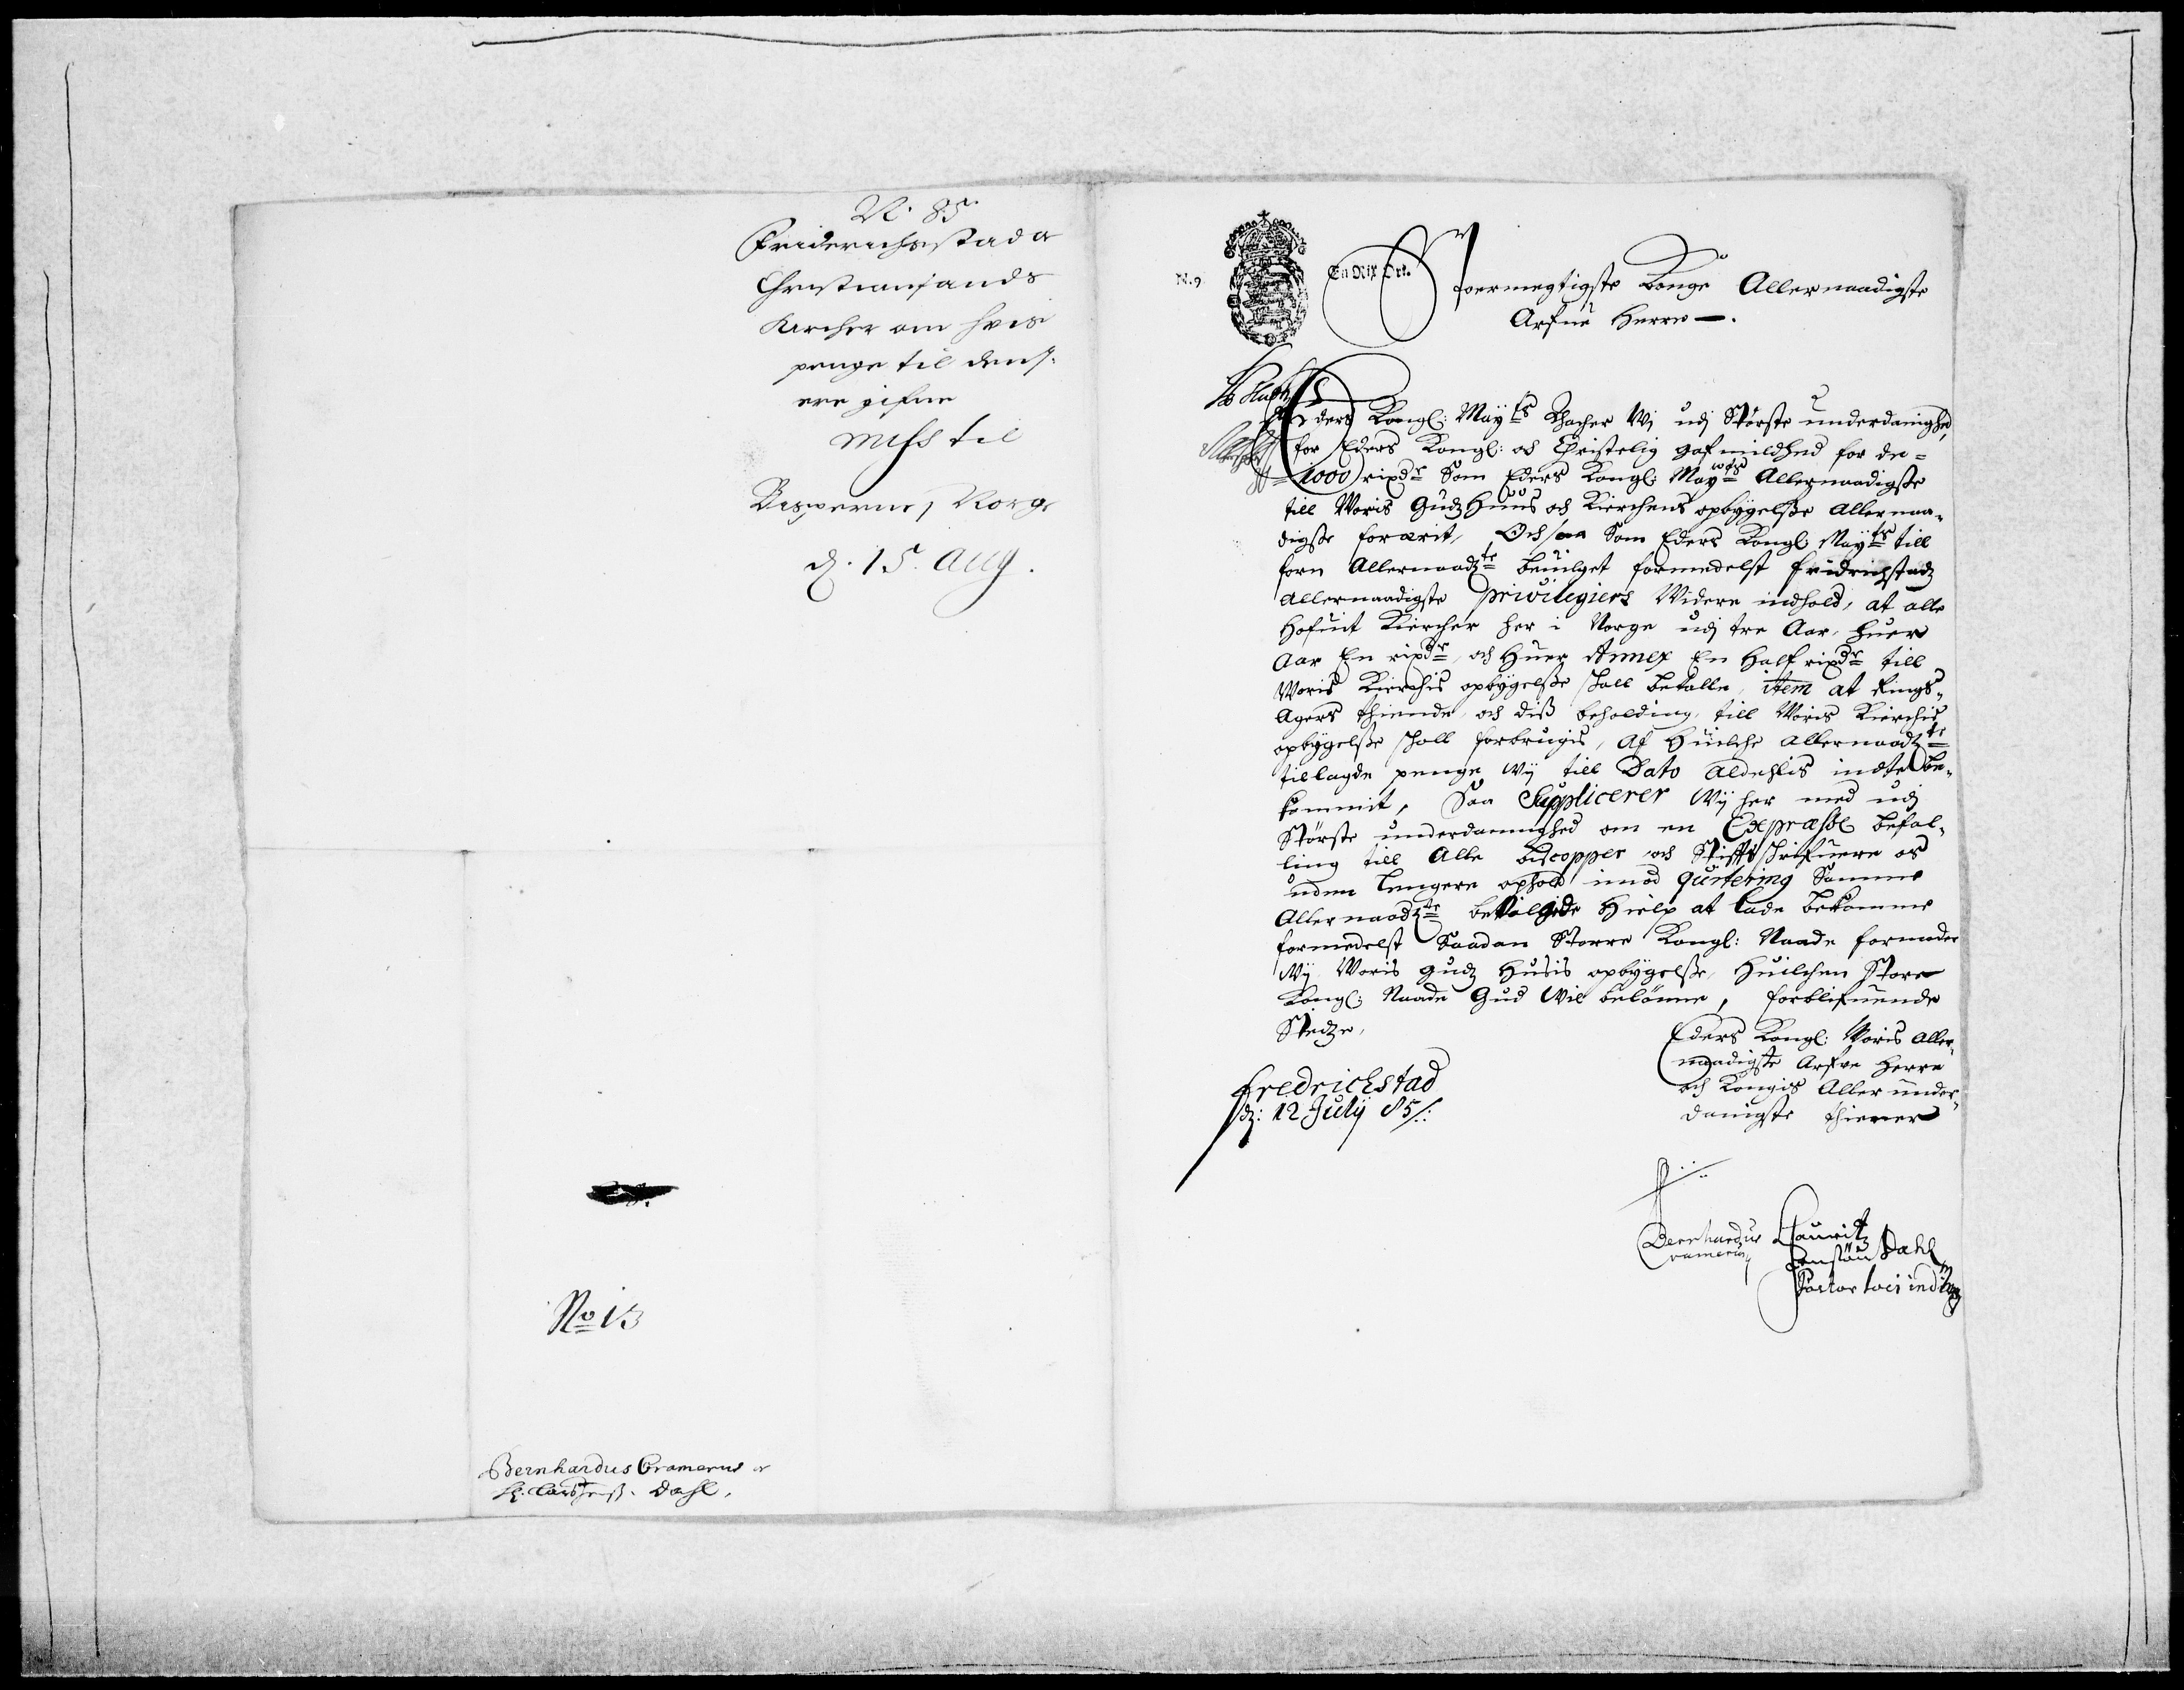 N. 85
Friderichsstad a
Christiansands
Kircher om hvis
penge til dennß:
ere gifne
Miss til
Bisperne i Norge
d. 15. Aug.
No 13
Bernhardus Cramerus
H: Lars Jenß. Dahl.
N. 9
En Rix Ort.
Stoermegtigste Konge Allernaadigste
Arfue Herre
Eders Kongl: Mayts Thacher Wj udj Største underdanighed,
for Eders Kongl: och Christelig gafmildhed for de=
1000 rixdr Som Eders Kongl: Mayts Allernaadigste
till Woris Gudz Huus och Kierchens opbÿgelße Allernaa-
digste forærit, Och saa Som Eders Kongl Mayts till
forn Allernaadzte beuilget formedelst fridrichstadz
Allernaadigste privilegiers Widere indhold, at alle
Hofuit Kiercher her i Norge udj tre Aar, huer
Aar En rixdr, och Huer Annex En Half rixdr till
Woris Kierchis opbÿgelße skall betalle, item at Rings-
Agers thiende, och diß beholding, till Woris Kierchis
opbÿgelße skall forbrugis, Af Huilche Allernaadzte
tillagde penge wÿ till Dato Aldehlis indtet be-
kommit, Saa Supplicerer Wÿ her med udj
Største underdannighed om en Expræsse befal-
ling till Alle biscopper och Stifftsschrifuere os
uden lengere ophold imod quitering Samme
Allernaadzte bevilgede Hielp at lade bekomme
formedelst Saadan Storre Kongl: Naade formoder
Wÿ Woris gudz Husis opbÿgelße, Huilchen Store
Kongl: Naade Gud Wil belønne, forblifuende
Stedze,
Eders Kongl: Woris Aller-
naadigste Arfve Herre
och Kongis Aller under-
danigste thiener
Fredrichstad
d: 12 Julÿ 85
Bernhardus
Cramerus
Lauritz
Jensøn Dahl
Pastor loci